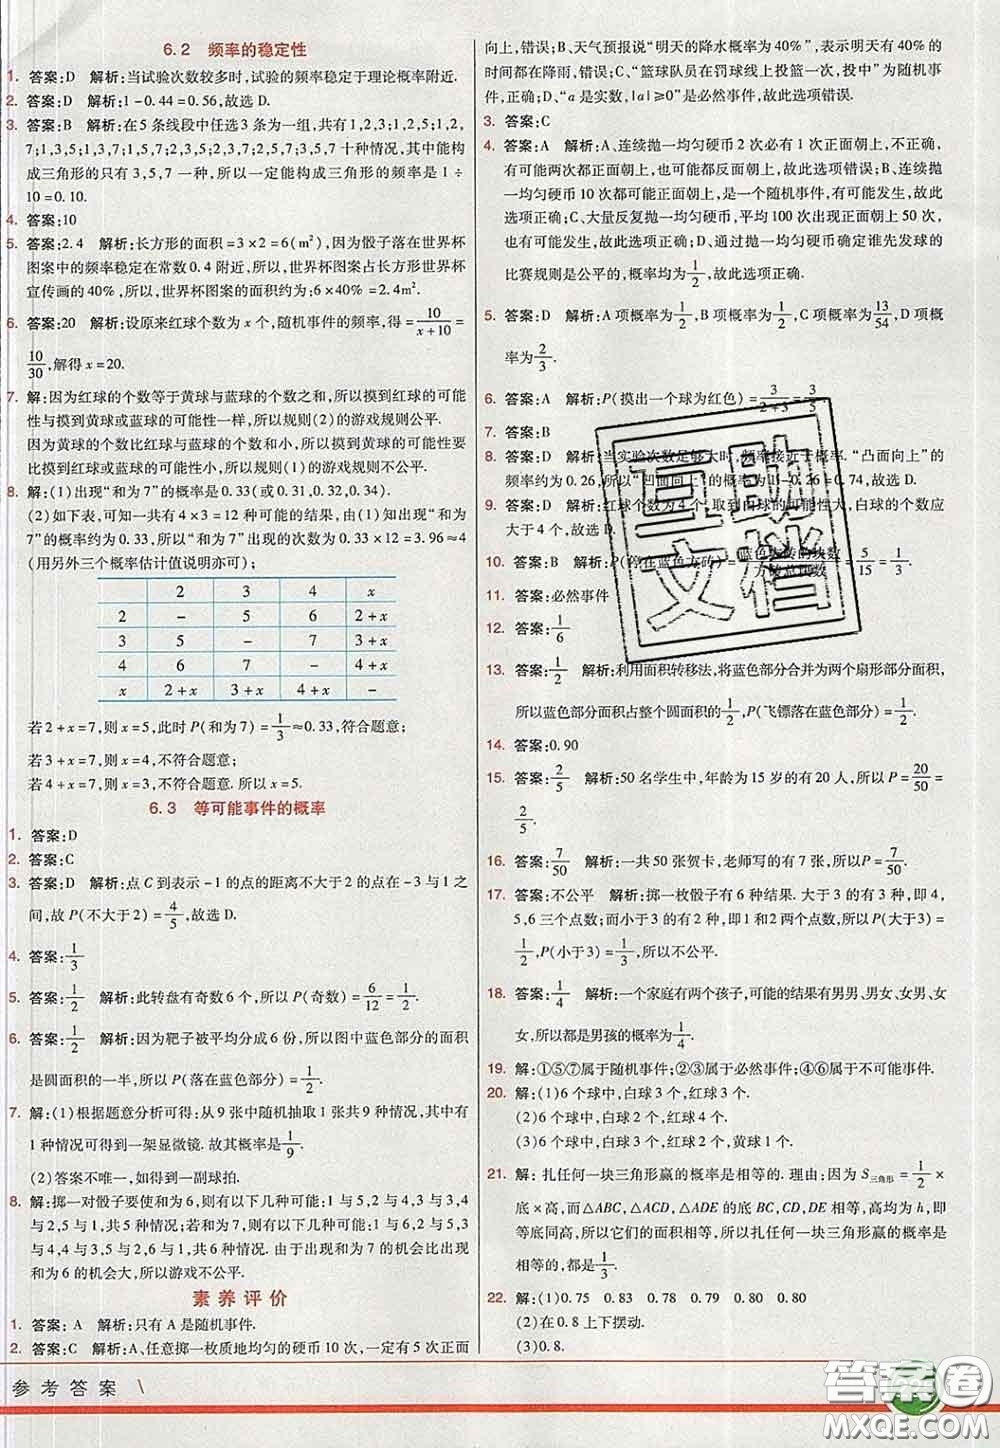 6.2 频率的稳定性
1. 答案:D 解析:当试验次数较多时,试验的频率稳定于理论概率附近.
2. 答案:D 解析:1-0.44=0.56,故选 D.
3. 答案:B 解析:在 5 条线段中任选 3 条为一组,共有 1,2,3;1,2,5;1,2,
7;1,3,5;1,3,7;1,5,7;2,3,5;2,3,7;2,5,7;3,5,7 十种情况,其中能构
成三角形的只有 3,5,7 一种,所以一定能构成三角形的频率是 1÷
10=0.10.
4. 答案:10
5. 答案:2.4 解析:长方形的面积=3×2=6(m²),因为骰子落在世界杯
图案中的频率稳定在常数 0.4 附近,所以,世界杯图案占长方形世界杯
宣传画的 40%,所以,世界杯图案的面积约为:6×40%=2.4m².
6. 答案:20 解析:设原来红球个数为 x 个,随机事件的频率,得=10/(x+10)=
10/30,解得 x=20.
7. 解:因为红球的个数等于黄球与蓝球的个数之和,所以摸到红球的可能
性与摸到黄球或蓝球的可能性一样,所以规则(2)的游戏规则公平.
因为黄球的个数比红球与蓝球的个数和小,所以摸到黄球的可能性要
比摸到红球或蓝球的可能性小,所以规则(1)的游戏规则不公平.
8. 解:(1)出现“和为 7”的概率是 0.33(或 0.31,0.32,0.34).
(2)如下表,可知一共有 4×3=12 种可能的结果,由(1)知出现“和为
7”的概率约为 0.33,所以“和为 7”出现的次数为 0.33×12=3.96≈4
(用另外三个概率估计值说明亦可);
2 3 4 x
2 - 5 6 2+x
3 5 - 7 3+x
4 6 7 - 4+x
x 2+x 3+x 4+x -
若 2+x=7,则 x=5,此时 P(和为 7)=1/3≈0.33,符合题意;
若 3+x=7,则 x=4,不符合题意;
若 4+x=7,则 x=3,不符合题意. 所以 x=5.
6.3 等可能事件的概率
1. 答案:D
2. 答案:C
3. 答案:D 解析:点 C 到表示-1 的点的距离不大于 2 的点在-3 与 1 之
间,故 P(不大于 2)=4/5,故选 D.
4. 答案:1/3
5. 答案:1/2 解析:此转盘有奇数 6 个,所以 P(奇数)=6/12=1/2.
6. 答案:1/2 解析:因为靶子被平均分成 6 份,所以图中蓝色部分的面积
是圆面积的一半,所以 P(落在蓝色部分)=1/2.
7. 解:(1)根据题意分析可得:从 9 张中随机抽取 1 张共 9 种情况,其中有
1 种情况可得到一架显微镜. 故其概率是1/9.
(2)答案不唯一,如得到一副球拍.
8. 解:掷一对骰子要使和为 6,则有以下几种可能:1 与 5,2 与 4,3 与 3,4
与 2,5 与 1,共 5 种情况;若和为 7,则有以下几种可能:1 与 6,2 与 5,3
与 4,4 与 3,5 与 2,6 与 1,共 6 种情况;由于出现和为 7 的机会比出现
和为 6 的机会大,所以游戏不公平.
素养评价
1. 答案:A 解析:只有 A 是随机事件.
2. 答案:C 解析:A、任意掷一枚质地均匀的硬币 10 次,一定有 5 次正面
向上,错误;B、天气预报说“明天的降水概率为 40%”,表示明天有 40%的
时间都在降雨,错误;C、“篮球队员在罚球线上投篮一次,投中”为随机事
件,正确;D、“a 是实数,|a|≥0”是必然事件,故此选项错误.
3. 答案:C
4. 答案:A 解析:A、连续抛一均匀硬币 2 次必有 1 次正面朝上,不正确,
有可能两次都正面朝上,也可能都反面朝上,故此选项错误;B、连续抛
一均匀硬币 10 次都可能正面朝上,是一个随机事件,有可能发生,故此
选项正确;C、大量反复抛一均匀硬币,平均 100 次出现正面朝上 50 次,
也有可能发生,故此选项正确;D、通过抛一均匀硬币确定谁先发球的
比赛规则是公平的,概率均为1/2,故此选项正确.
5. 答案:D 解析:A 项概率为1/2,B 项概率为1/2,C 项概率为13/54,D 项概
率为2/3.
6. 答案:A 解析:P(摸出一个球为红色)=3/(2+3)=3/5.
7. 答案:B
8. 答案:D 解析:当实验次数足够大时,频率接近于概率. “凸面向上”的
频率约为 0.26,所以“凹面向上”的概率约为 1-0.26=0.74,故选 D.
9. 答案:D 解析:红球个数为 4 个,取到白球的可能性大,白球的个数应
大于 4 个,故选 D.
10. 答案:B 解析:P(停在蓝色方砖)=蓝色方砖的块数/方砖总块数=5/15=1/3.
11. 答案:必然事件
12. 答案:1/6
13. 答案:1/2 解析:利用面积转移法,将蓝色部分合并为两个扇形部分面积,
所以蓝色部分面积占整个圆面积的1/2,P(飞镖落在蓝色部分)=1/2.
14. 答案:0.90
15. 答案:2/5 解析:50 名学生中,年龄为 15 岁的有 20 人,所以 P=20/50=
2/5.
16. 答案:7/50 解析:一共 50 张贺卡,老师写的有 7 张,所以 P=7/50.
17. 答案:不公平 解析:掷一枚骰子有 6 种结果. 大于 3 的有 3 种,即 4,
5,6 三个点数;而小于 3 的有 2 种,即 1 和 2 两个点数,所以 P(大于 3)=
1/2,P(小于 3)=1/3,所以不公平.
18. 答案:1/4 解析:一个家庭有两个孩子,可能的结果有男男、男女、女男、女
女,所以都是男孩的概率为1/4.
19. 解:①⑤⑦属于随机事件;②③属于必然事件;④⑥属于不可能事件.
20. 解:(1)6 个球中,白球 3 个,红球 3 个.
(2)6 个球中,白球 2 个,红球 4 个.
(3)6 个球中,白球 3 个,红球 2 个,黄球 1 个.
21. 解:扎任何一块三角形赢的概率是相等的. 理由:因为 S三角形=1/2×
底×高,而△ABC,△ACD,△ADE 的底 BC,CD,DE 相等,高均为 h,即
等底同高,所以它们的面积相等,所以扎任何一块三角形赢的概率是相
等的,都是1/3.
22. 解:(1)0.75 0.83 0.78 0.79 0.80 0.80
(2)在 0.8 上下摆动.
(3)0.8.
互助
文档
参考答案
答案圈
MXQE.COM